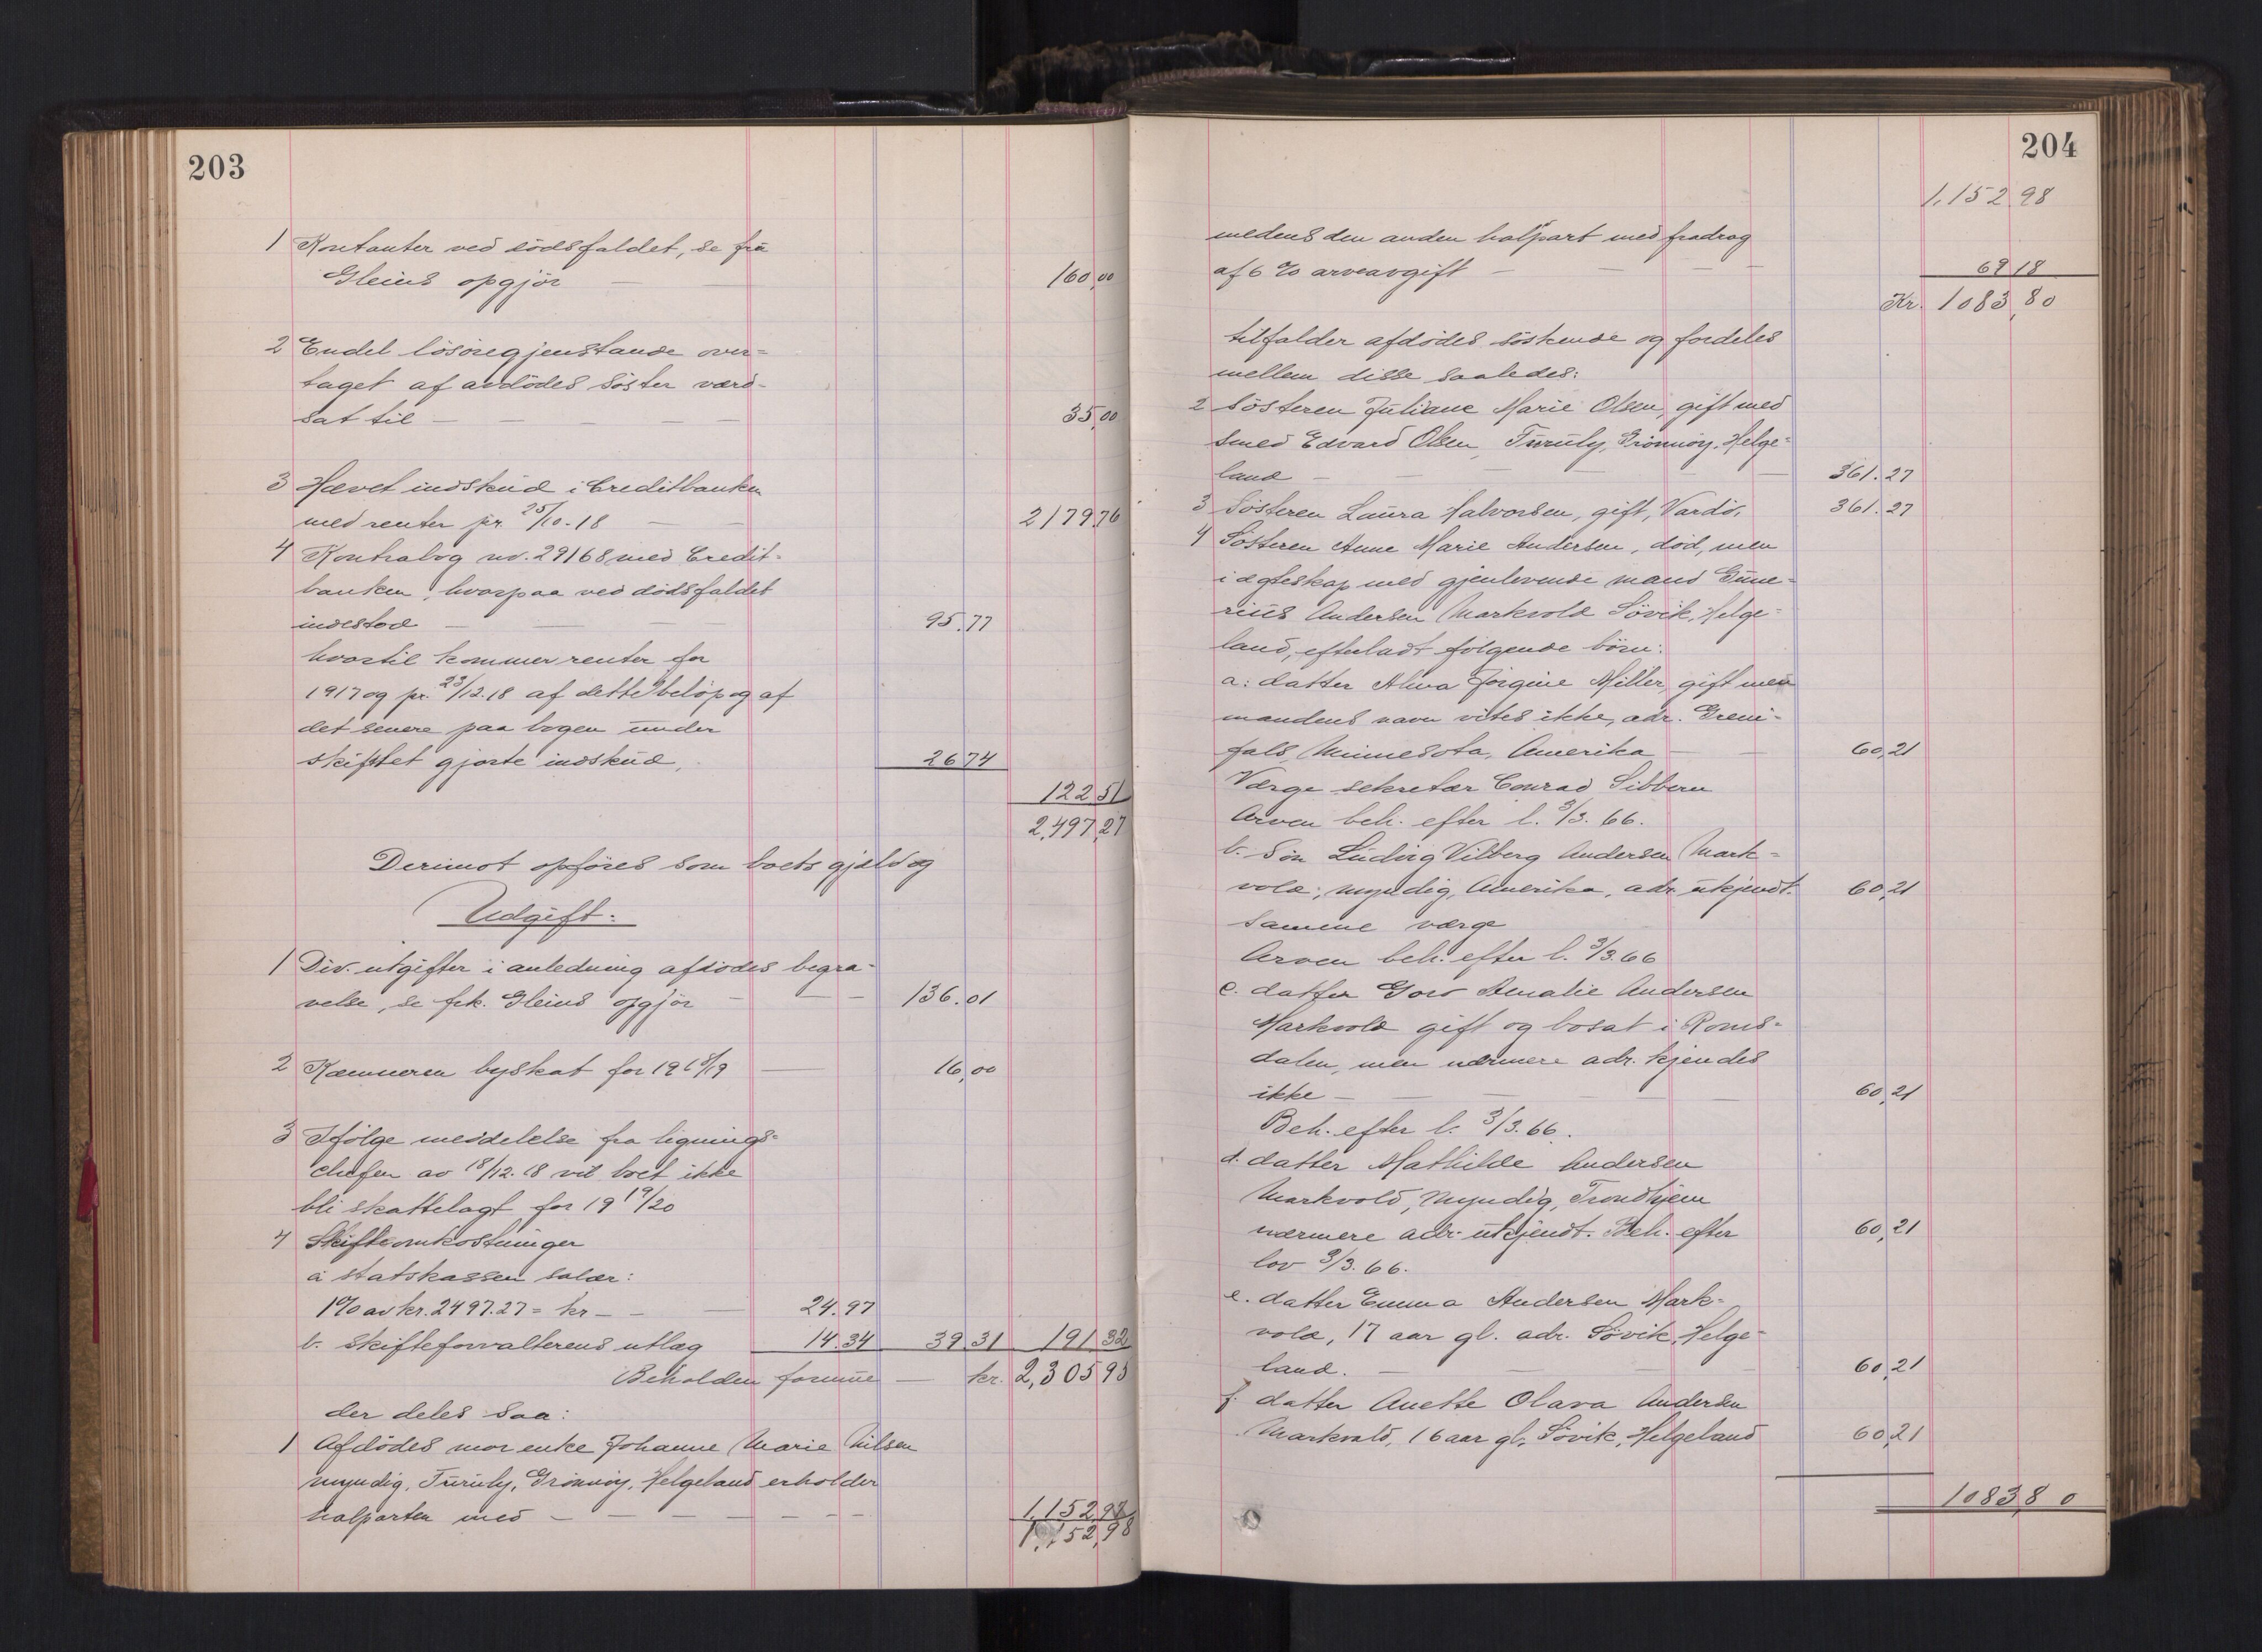 203
1 Kontanter ved dödsfaldet, se frk
Gleins opgjör — — 160,00
2 Endel lösöregjenstande over-
taget af avdödes söster værd-
sat til — — — — — 35,00
3 Hævet indskud i Creditbanken
med renter pr. 25/10-18 — — 2179,76
4 Kontrabog nr. 29168 med Credit-
banken, hvorpaa ved dödsfaldet
indestod — — — 95.77
hvortil kommer renter for
1917 og pr. 23/12.18 af dette belöp og af
det senere paa bogen under
skiftet gjorte indskud, 26 74
122 51
2,497,27
Derimot opföres som boets gjæld og
Udgift:
1 Div. utgifter i anledning afdödes begra-
velse, se frk. Gleins opgjör — — — 136.01
2 Kæmneren byskat for 1918/19 — 16,00
3 Ifölge meddelelse fra lignings-
chefen av 18/12.18 vil boet ikke
bli skattelagt for 1919/20
4 Skifteomkostninger
a statskassen salær:
1% av kr. 2497.27 = kr — — — 24.97
b. skifteforvalterens utlæg 14.34 39 31 191 32
Beholden formue — kr. 2,305 95
der deles saa:
1 Afdödes mor enke Johanne Marie Nilsen
myndig, Furuly, Grönnöy, Helgeland erholder
halparten med — — — — — — — 1,152,97
1,152,98
204
1,152 98
medens den anden halpart med fradrag
af 6 % arveavgift — — — — 69 18
Kr. 1083,80
tilfalder afdödes söskende og fordeles
mellem disse saaledes:
2 Sösteren Juliane Marie Olsen, gift med
smed Edvard Olsen, Furuly, Grönnöy, Helge-
land — — — — — 361.27
3 Sösteren Laura Halvorsen, gift, Vardö, 361.27
4 Sösteren Anne Marie Andersen, död, men
i ægteskap med gjenlevende mand Gune-
rius Andersen Markvold Sövik, Helge-
land, efterladt fölgende börn:
a: datter Alma Jörgine Miller, gift men
mandens navn vites ikke, adr. Greni-
fals, Minnesota, Amerika — — 60,21
Værge sekretær Conrad Sibbern
Arven beh. efter l. 3/3. 66.
b. Sön Ludvig Vilberg Andersen Mark-
vold; myndig, Amerika, adr ukjendt. 60,21
samme værge
Arven beh. efter l. 3/3.66
c. datter Goro Amalie Andersen
Markvold gift og bosat i Roms-
dalen, men nærmere adr. kjendes
ikke — — — — — — 60,21
Beh. efter l. 3/3.66.
d. datter Mathilde Andersen
Markvold, myndig, Trondhjem
nærmere adr. ukjendt. Beh. efter 60,21
lov 3/3. 66.
e. datter Emma Andersen Mark-
vold, 17 aar gl. adr. Sövik, Helge-
land. — — — — 60,21
f. datter Anette Olava Andersen
Markvold, 16 aar gl, Sövik, Helgeland 60,21
1083,80